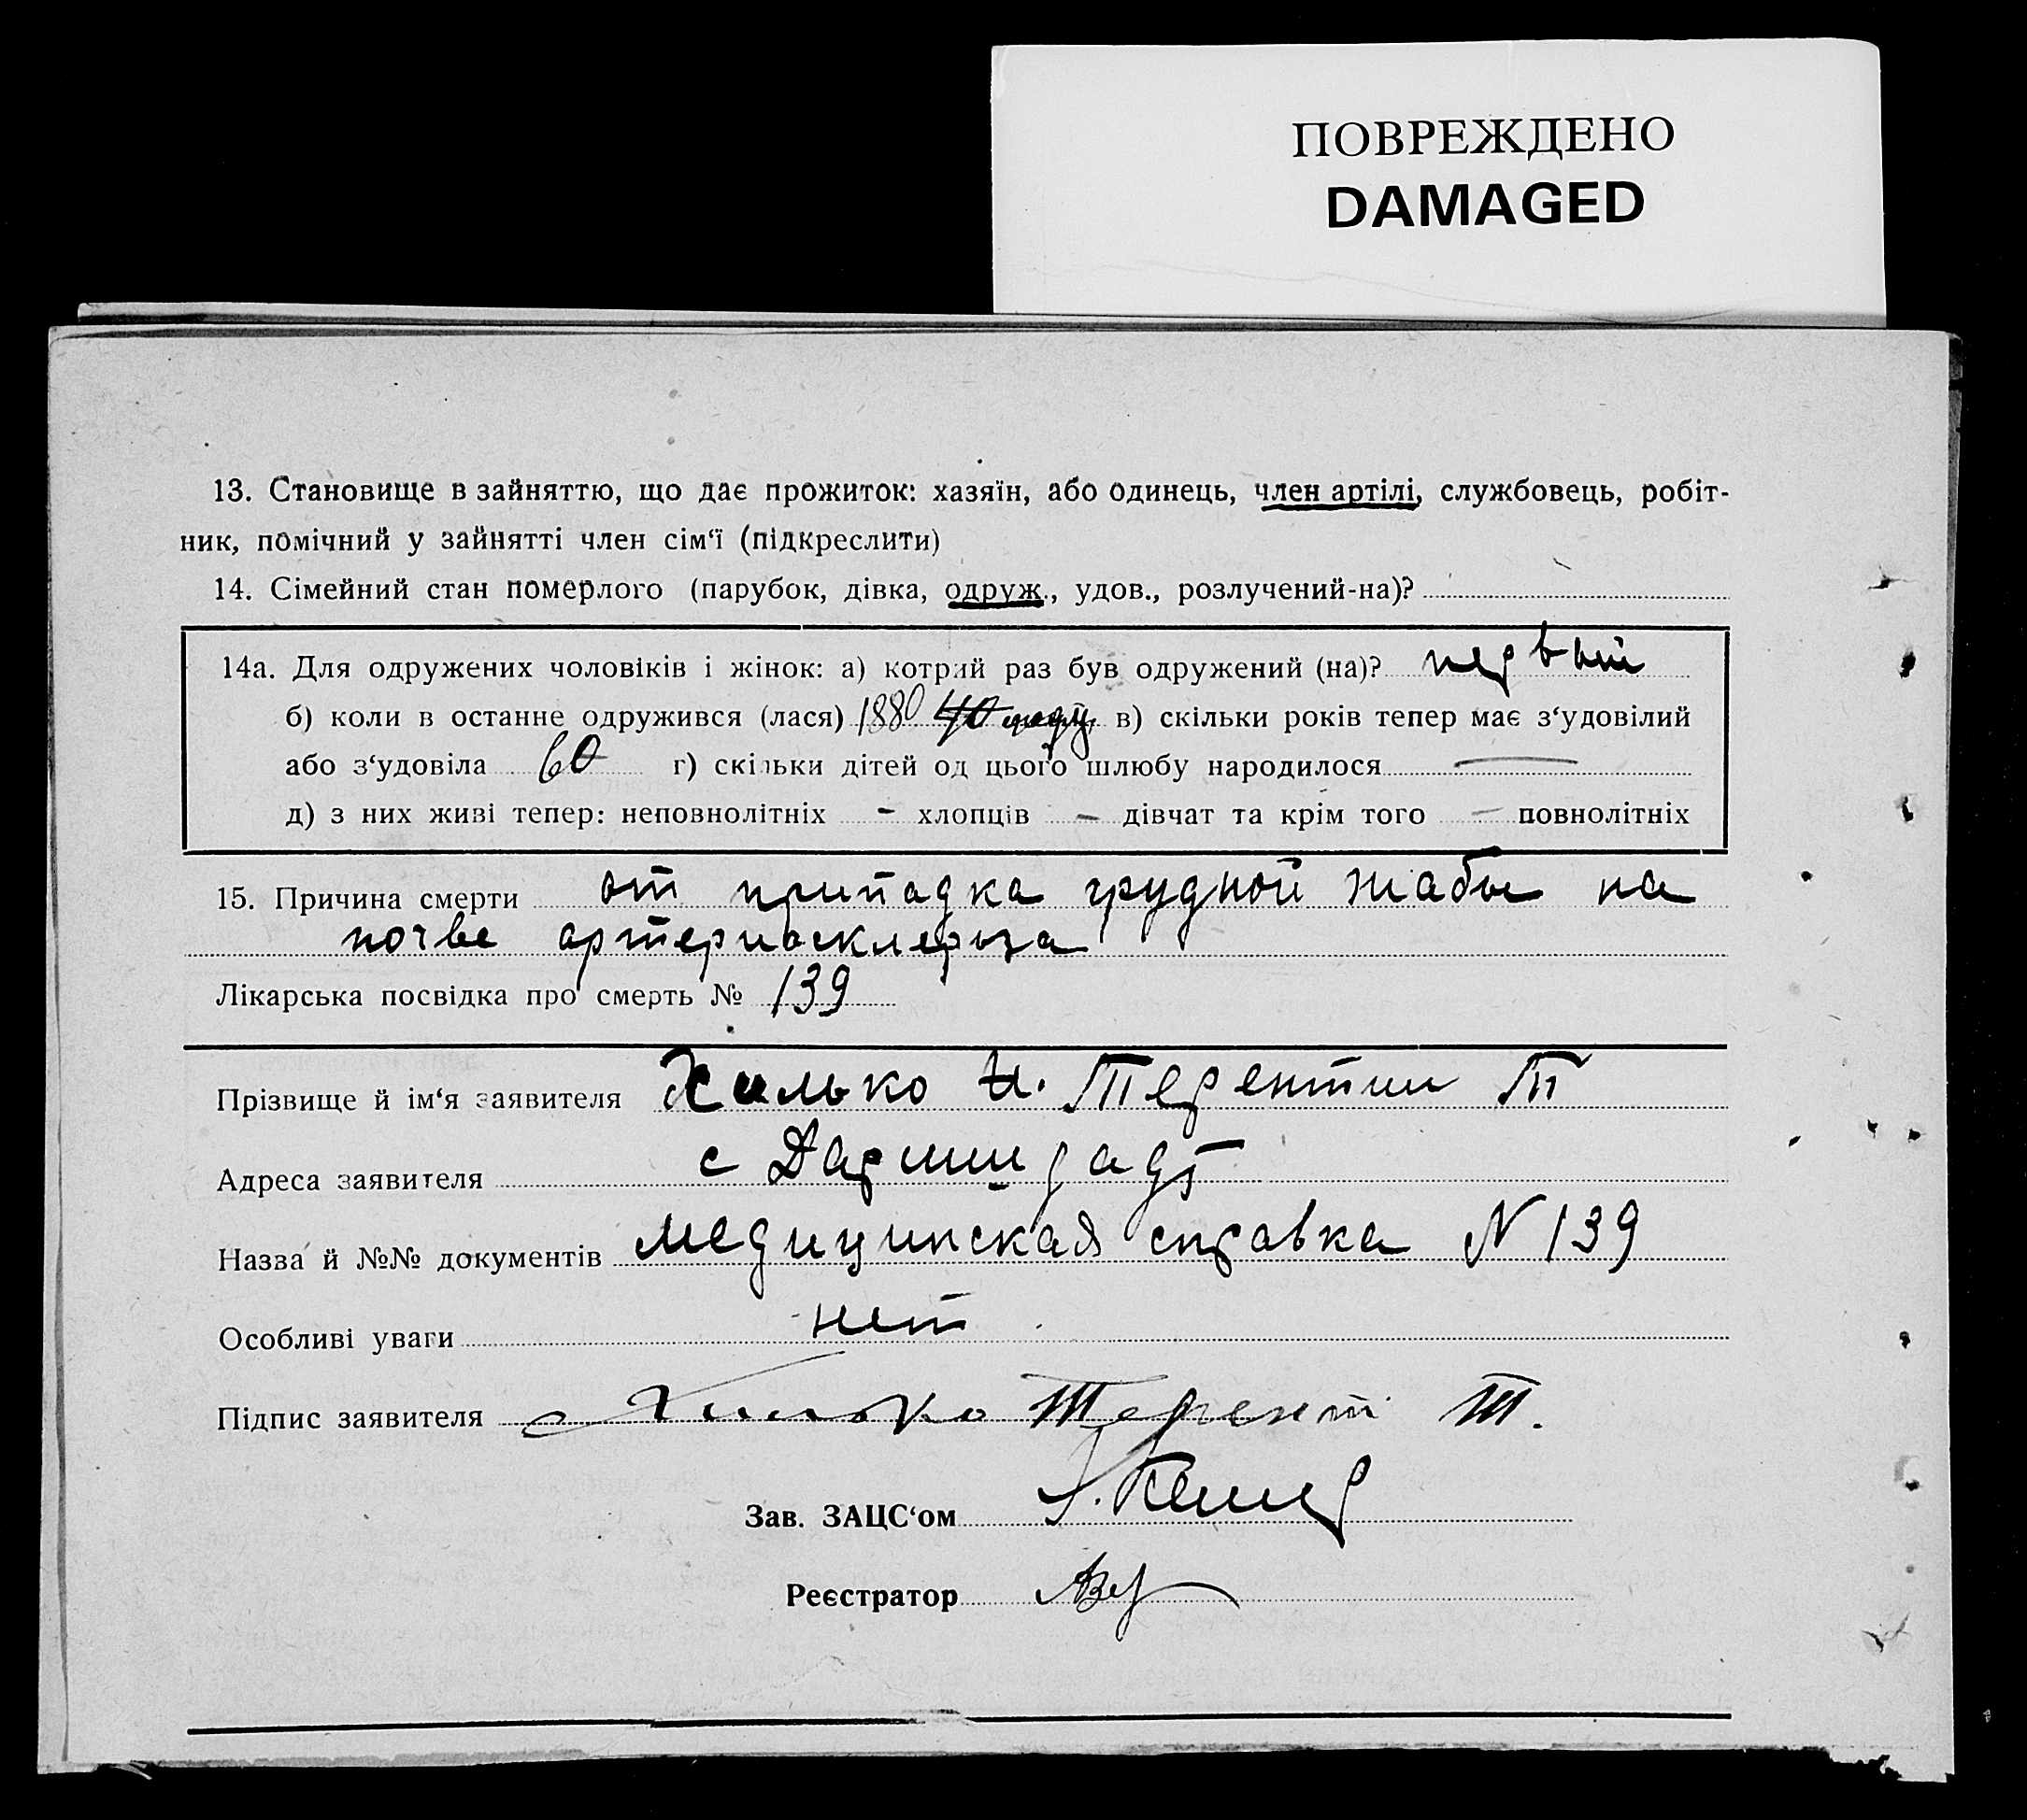 ПОВРЕЖДЕНО
DAMAGED
13. Становище в зайняттю, що дає прожиток: хазяїн, або одинець, член артілі, службовець, робіт-
ник, помічний у зайнятті член сім‘ї (підкреслити)
14. Сімейний стан померлого (парубок, дівка, одруж., удов., розлучений-на)?
14а. Для одружених чоловіків і жінок: а) котрий раз був одружений (на)? первый
б) коли в останнє одружився (лася) 1880 в) скільки років тепер має з‘удовілий
або з‘удовіла 60 г) скільки дітей од цього шлюбу народилося —
д) з них живі тепер: неповнолітніх - хлопців - дівчат та крім того - повнолітніх
15. Причина смерти от припадка грудной жабы на
почве артериосклероза
Лікарська посвідка про смерть № 139
Прізвище й ім‘я заявителя Хилько И. Терентии Т
Адреса заявителя с
Назва й №№ документів медицинская справка N 139
Особливі уваги нет
Підпис заявителя Хилько Терент Т.
Зав. ЗАЦС‘ом
Реєстратор